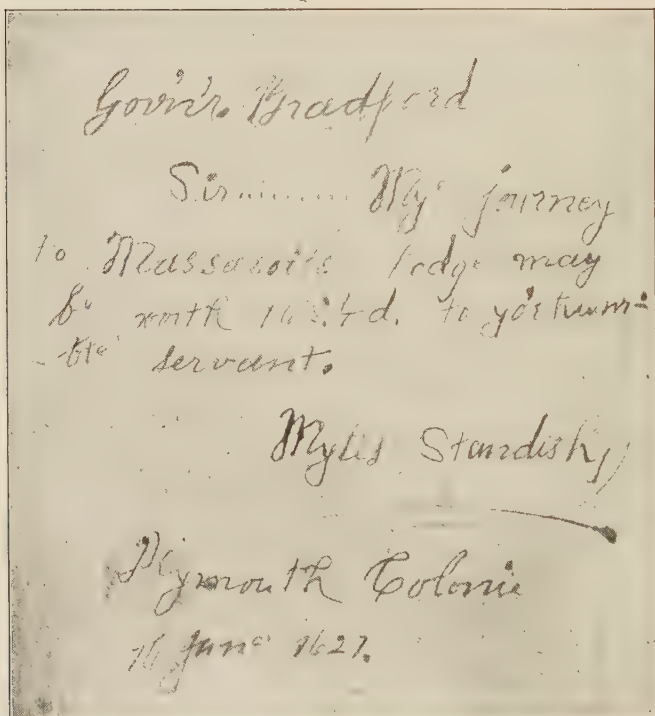 Gov'n'r. Bradford
Sir......... My journey
to Massasoits lodge may
be worth 4d. to yor hum-
-ble servant.
Myles Standish
Plymouth Colonie
16 June 1627.